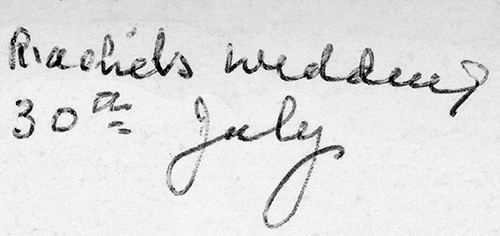 Rachels wedding
30th July